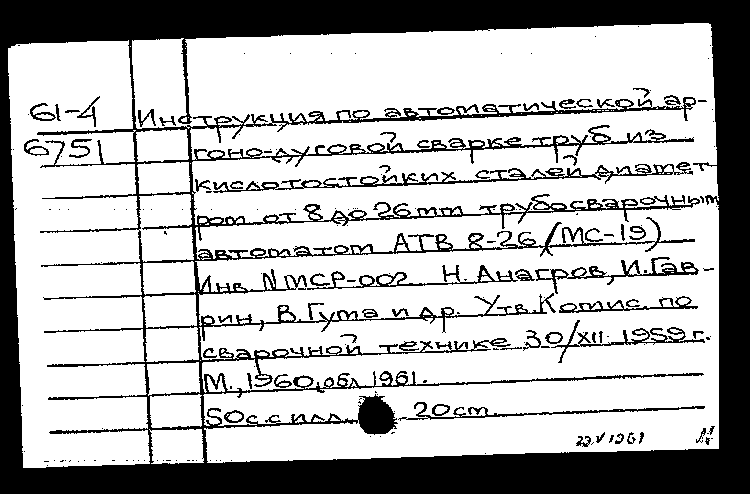 61-4 Инструкция по автоматической ар-
6751 гоно-дуговой сварке труб из
кислотостойких сталей диамет-
ром от 8 до 26 mm трубосварочным
автоматом АТВ 8-26 (МС-19)
Инв. N МСР-002 Н. Анагров, И. Гав-
рин, В. Гума и др. Утв. Комис. по
сварочной технике 30/XII. 1959 г.
М., 1960, обл. 1961.
50 с. с илл. 20 cm.
1961